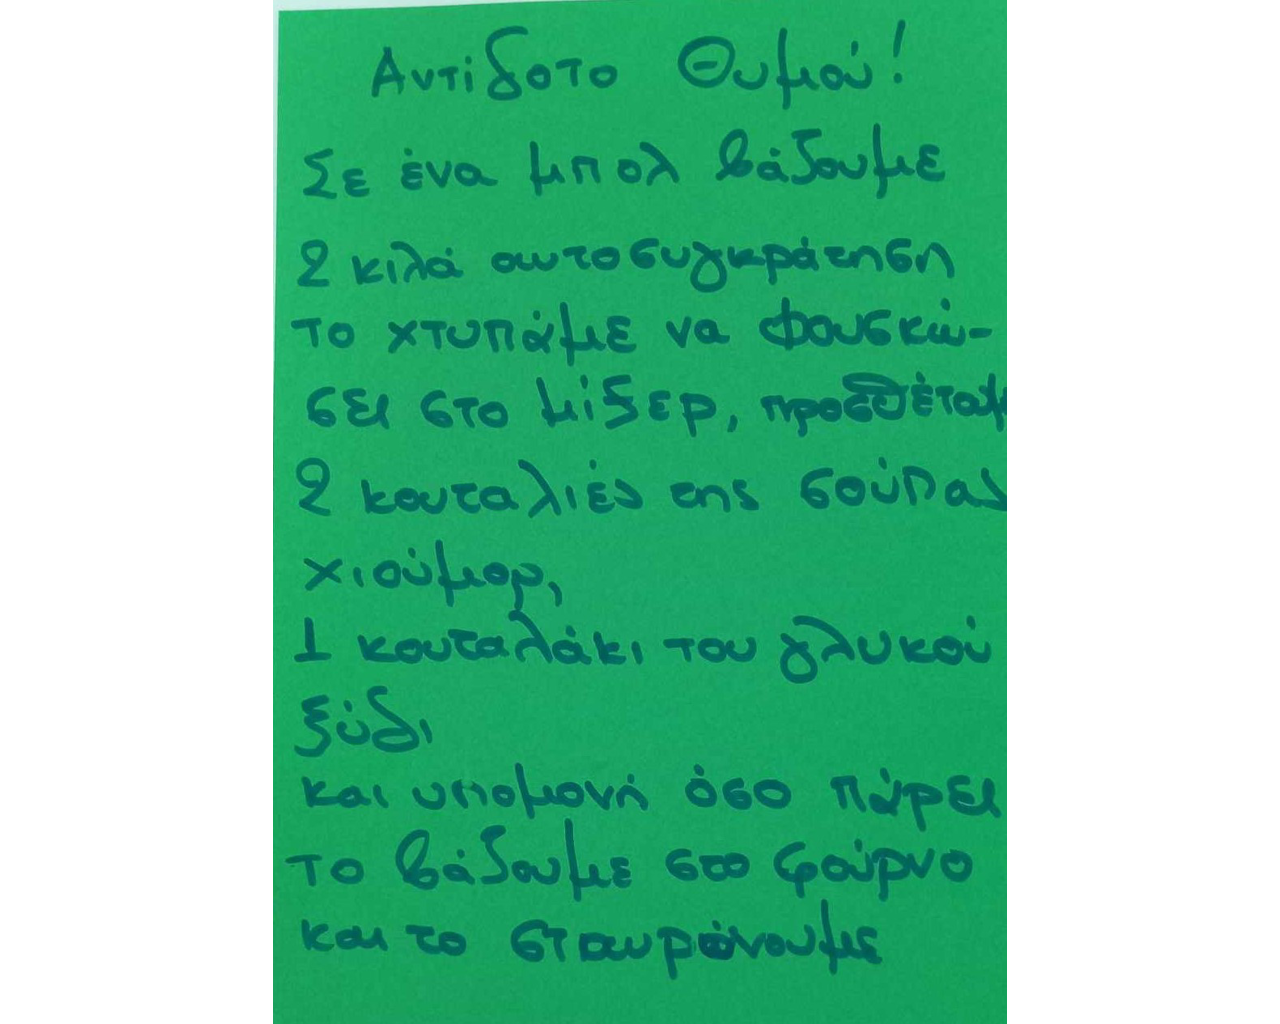 Αντίδοτο Θυμού!
Σε ένα μπολ βάζουμε
2 κιλά αυτοσυγκράτηση
το χτυπάμε να φουσκώ-
σει στο μίξερ, προσθέταμ
2 κουταλιές της σούπας
χιούμορ,
1 κουταλάκι του γλυκού
ξύδι
και υπομονή όσο πάρει
το βάζουμε στο φούρνο
και το σταυρώνουμε